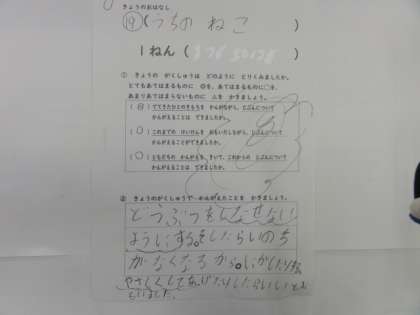 きょうのおはなし
⑲(うちの ねこ)
1ねん(
① きょうの がくしゅうは どのように とりくみましたか。
とてもあてはまるものに ◎を、あてはまるものに○を、
あまりあてはまらないものに △を かきましょう。
(◎)でてきたひとのきもちを かんがえながら、じぶんについて
かんがえることは できましたか。
(○)これまでの けいけんを おもいだしながら、じぶんについて
かんがえることができましたか。
(○)ともだちの かんがえを きいて、これからの じぶんについて
かんがえることは できましたか。
② きょうのがくしゅうで かんがえたことを かきましょう。
どうぶつを
ようにする。そしたらいのち
がなくなるから。
やさしくしてあげたりしたらいいとお
もいました。